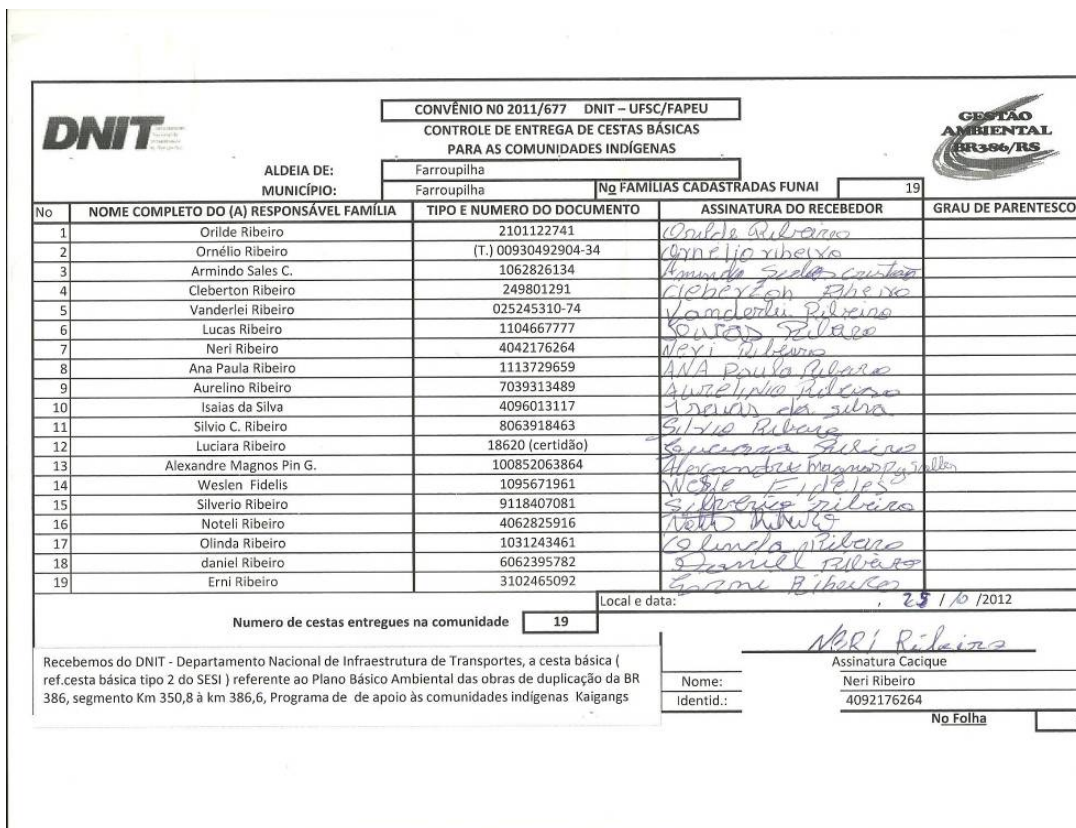 CONVÊNIO N0 2011/677 DNIT – UFSC/FAPEU
DNIT
CONTROLE DE ENTREGA DE CESTAS BÁSICAS
PARA AS COMUNIDADES INDÍGENAS
GESTÃO
AMBIENTAL
BR386/RS
ALDEIA DE: Farroupilha
MUNICÍPIO: Farroupilha No FAMÍLIAS CADASTRADAS FUNAI 19
No NOME COMPLETO DO (A) RESPONSÁVEL FAMÍLIA TIPO E NUMERO DO DOCUMENTO ASSINATURA DO RECEBEDOR GRAU DE PARENTESCO
1 Orilde Ribeiro 2101122741 Orilde Ribeiro
2 Ornélio Ribeiro (T.) 00930492904-34 Ornelio ribeixo
3 Armindo Sales C. 1062826134
4 Cleberton Ribeiro 249801291 Cleberton
5 Vanderlei Ribeiro 025245310-74 Vanderlei Ribeiro
6 Lucas Ribeiro 1104667777
7 Neri Ribeiro 4042176264 Neri Ribeiro
8 Ana Paula Ribeiro 1113729659 ANA Paula Ribeiro
9 Aurelino Ribeiro 7039313489 Ribeiro
10 Isaias da Silva 4096013117 da silva
11 Silvio C. Ribeiro 8063918463 Silvio Ribeiro
12 Luciara Ribeiro 18620 (certidão)
13 Alexandre Magnos Pin G. 100852063864 Alexandre magnos
14 Weslen Fidelis 1095671961 Fideles
15 Silverio Ribeiro 9118407081 ribeiro
16 Noteli Ribeiro 4062825916
17 Olinda Ribeiro 1031243461 Olinda Ribeiro
18 daniel Ribeiro 6062395782 Daniel Ribeiro
19 Erni Ribeiro 3102465092
Local e data: , 25 / 10 /2012
Numero de cestas entregues na comunidade 19
NERI Ribeiro
Assinatura Cacique
Recebemos do DNIT - Departamento Nacional de Infraestrutura de Transportes, a cesta básica (
ref.cesta básica tipo 2 do SESI ) referente ao Plano Básico Ambiental das obras de duplicação da BR
386, segmento Km 350,8 à km 386,6, Programa de de apoio às comunidades indígenas Kaigangs
Nome: Neri Ribeiro
Identid.: 4092176264
No Folha